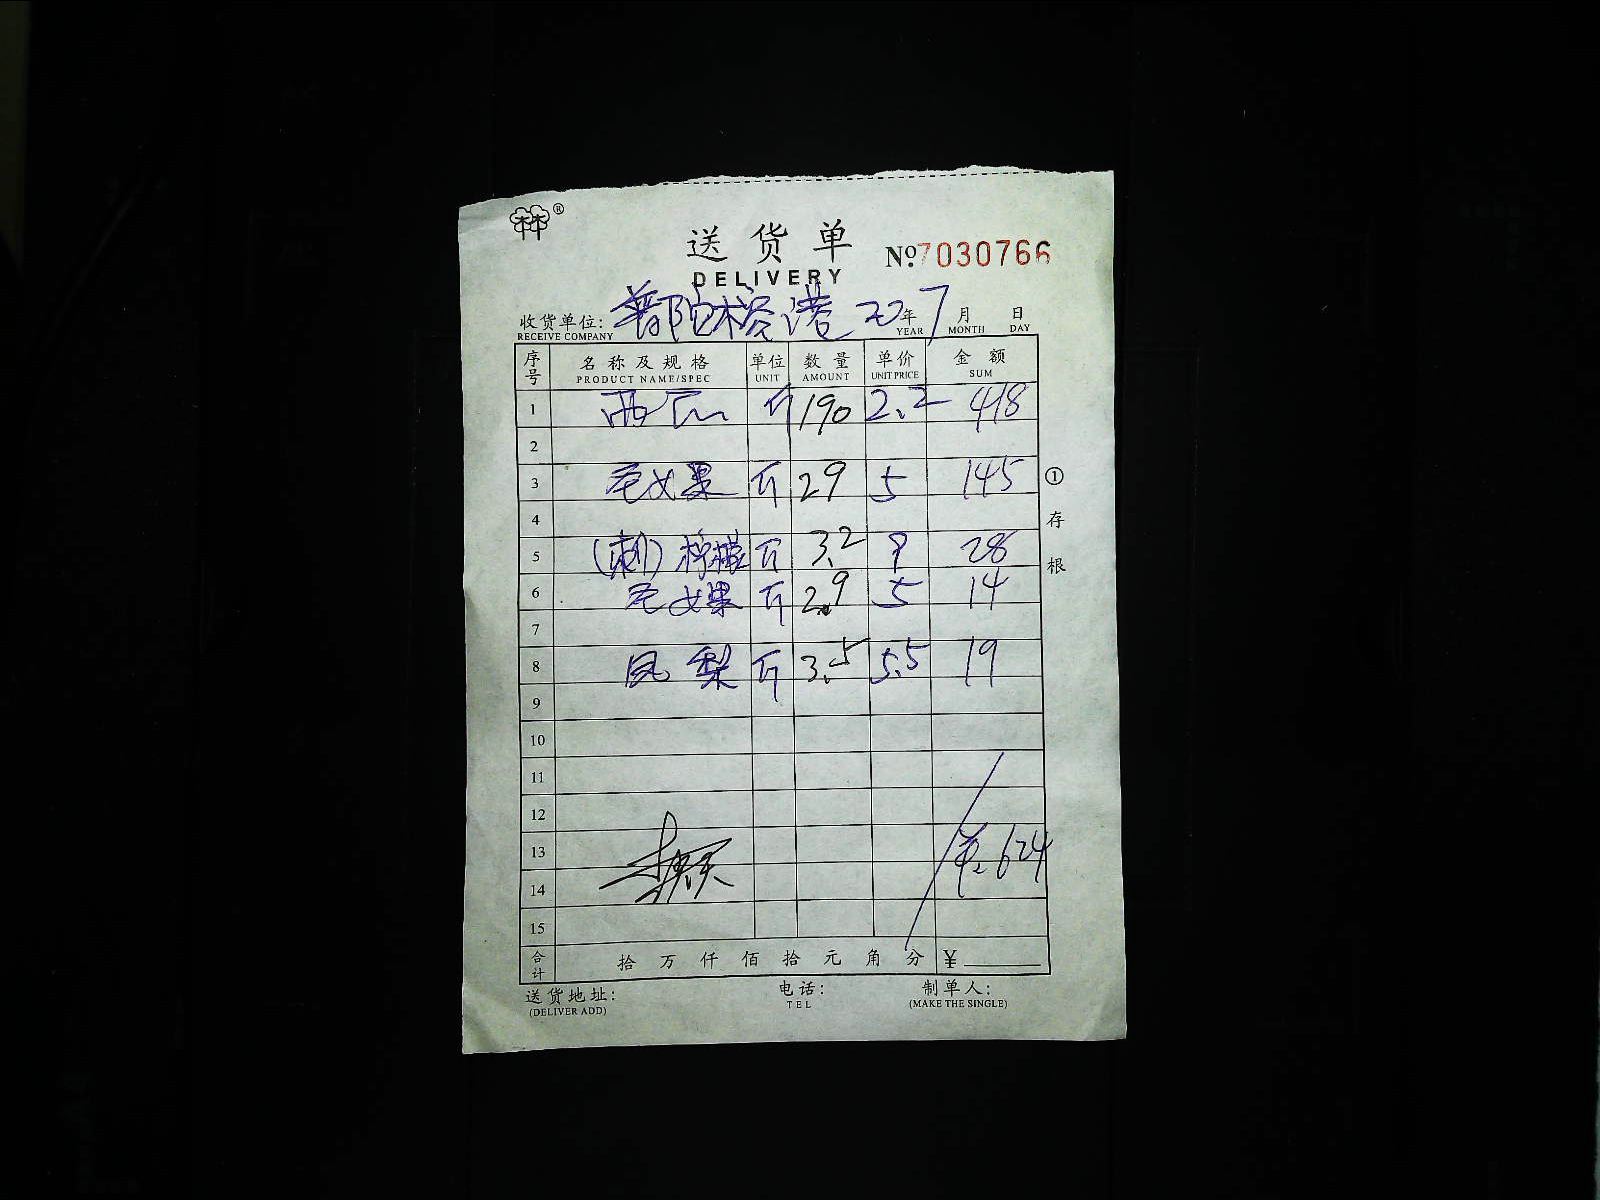 ®
送货单
DELIVERY
No.7030766
收货单位: 普陀榕港 22年7月 日
RECEIVE COMPANY YEAR MONTH DAY
序号 名称及规格 单位 数量 单价 金额
PRODUCT NAME/SPEC UNIT AMOUNT UNIT PRICE SUM
1 西瓜 斤 190 2.2 418
2
3 毛女果 斤 29 5 145
4
5 (刺) 柠檬 斤 3.2 9 28
6 毛女果 斤 2.9 5 14
7
8 凤梨 斤 3.5 5.5 19
9
10
11
12
13 624
14
15
合计 拾 万 仟 佰 拾 元 角 分 ¥
送货地址: 电话: 制单人:
(DELIVER ADD) TEL (MAKE THE SINGLE)
①存根